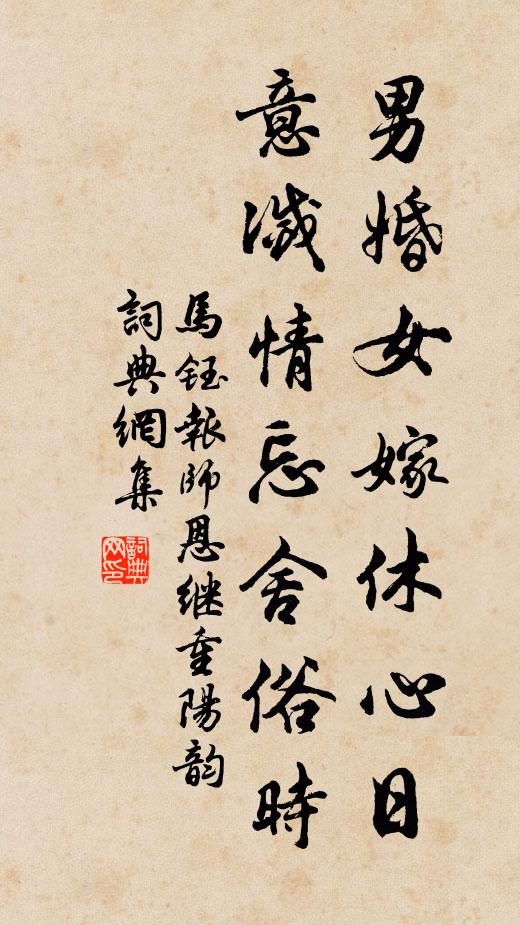 男婚女嫁休心日
意滅情忘舍俗時
馬鈺報師恩继重陽韵
詞典網集
詞典网印